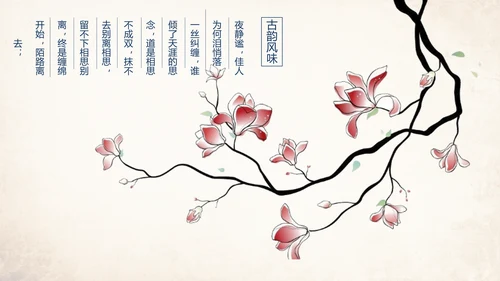 古韵风味
夜静谧，佳人
为何泪悄落
一丝纠缠，谁
倾了天涯的思
念，道是相思
不成双，抹不
去别离相思，
留不下相思别
离，终是缠绵
开始，陌路离
去；